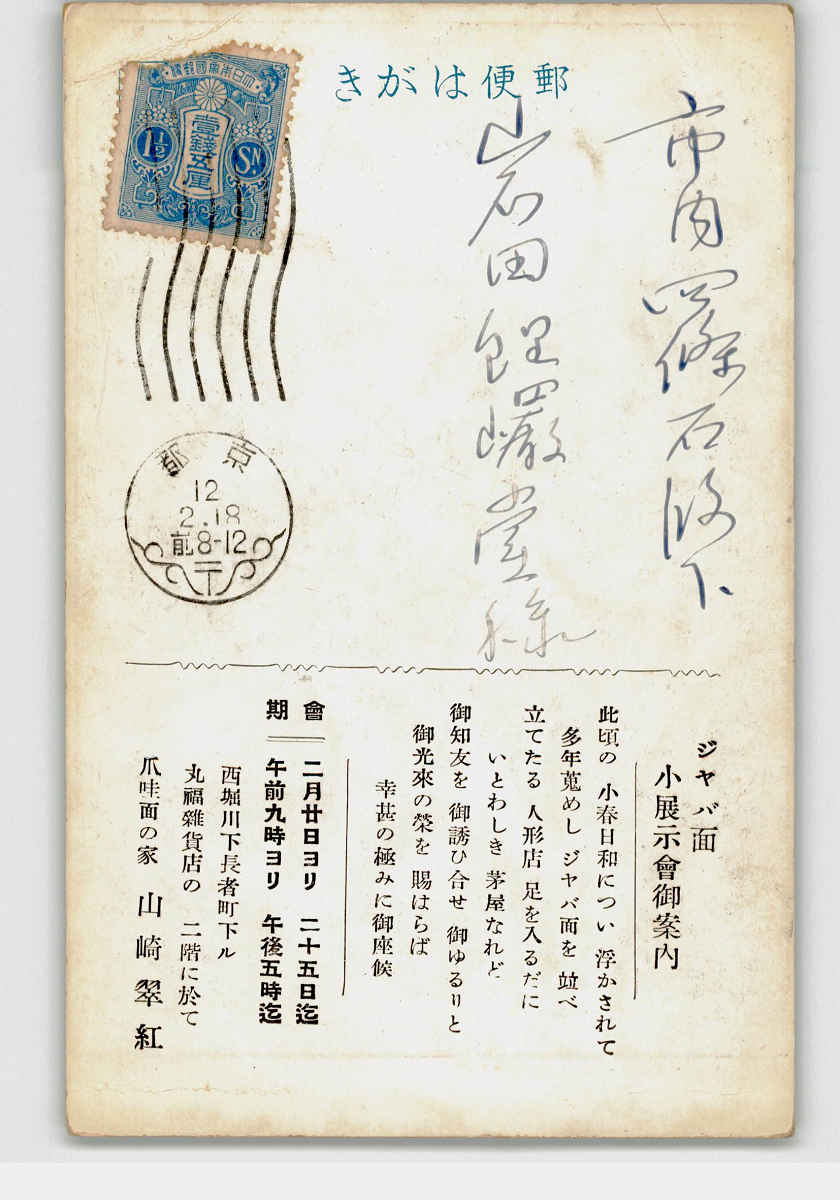 郵便はがき
大日本帝國郵便
壹錢五厘
1½
SN
市内四條石段下
山石田
堂様
京都
12
2.18
前8-12
〒
ジャバ面
小展示會御案内
此頃の 小春日和につい 浮かされて
多年蒐めし ジヤバ面を 竝べ
立てたる 人形店 足を入るだに
いとわしき 茅屋なれど
御知友を 御誘ひ合せ 御ゆるりと
御光來の榮を 賜はらば
幸甚の極みに御座候
會期
二月廿日ヨリ 二十五日迄
午前九時ヨリ 午後五時迄
西堀川下長者町下ル
丸福雜貨店の 二階に於て
爪哇面の家 山崎翠紅